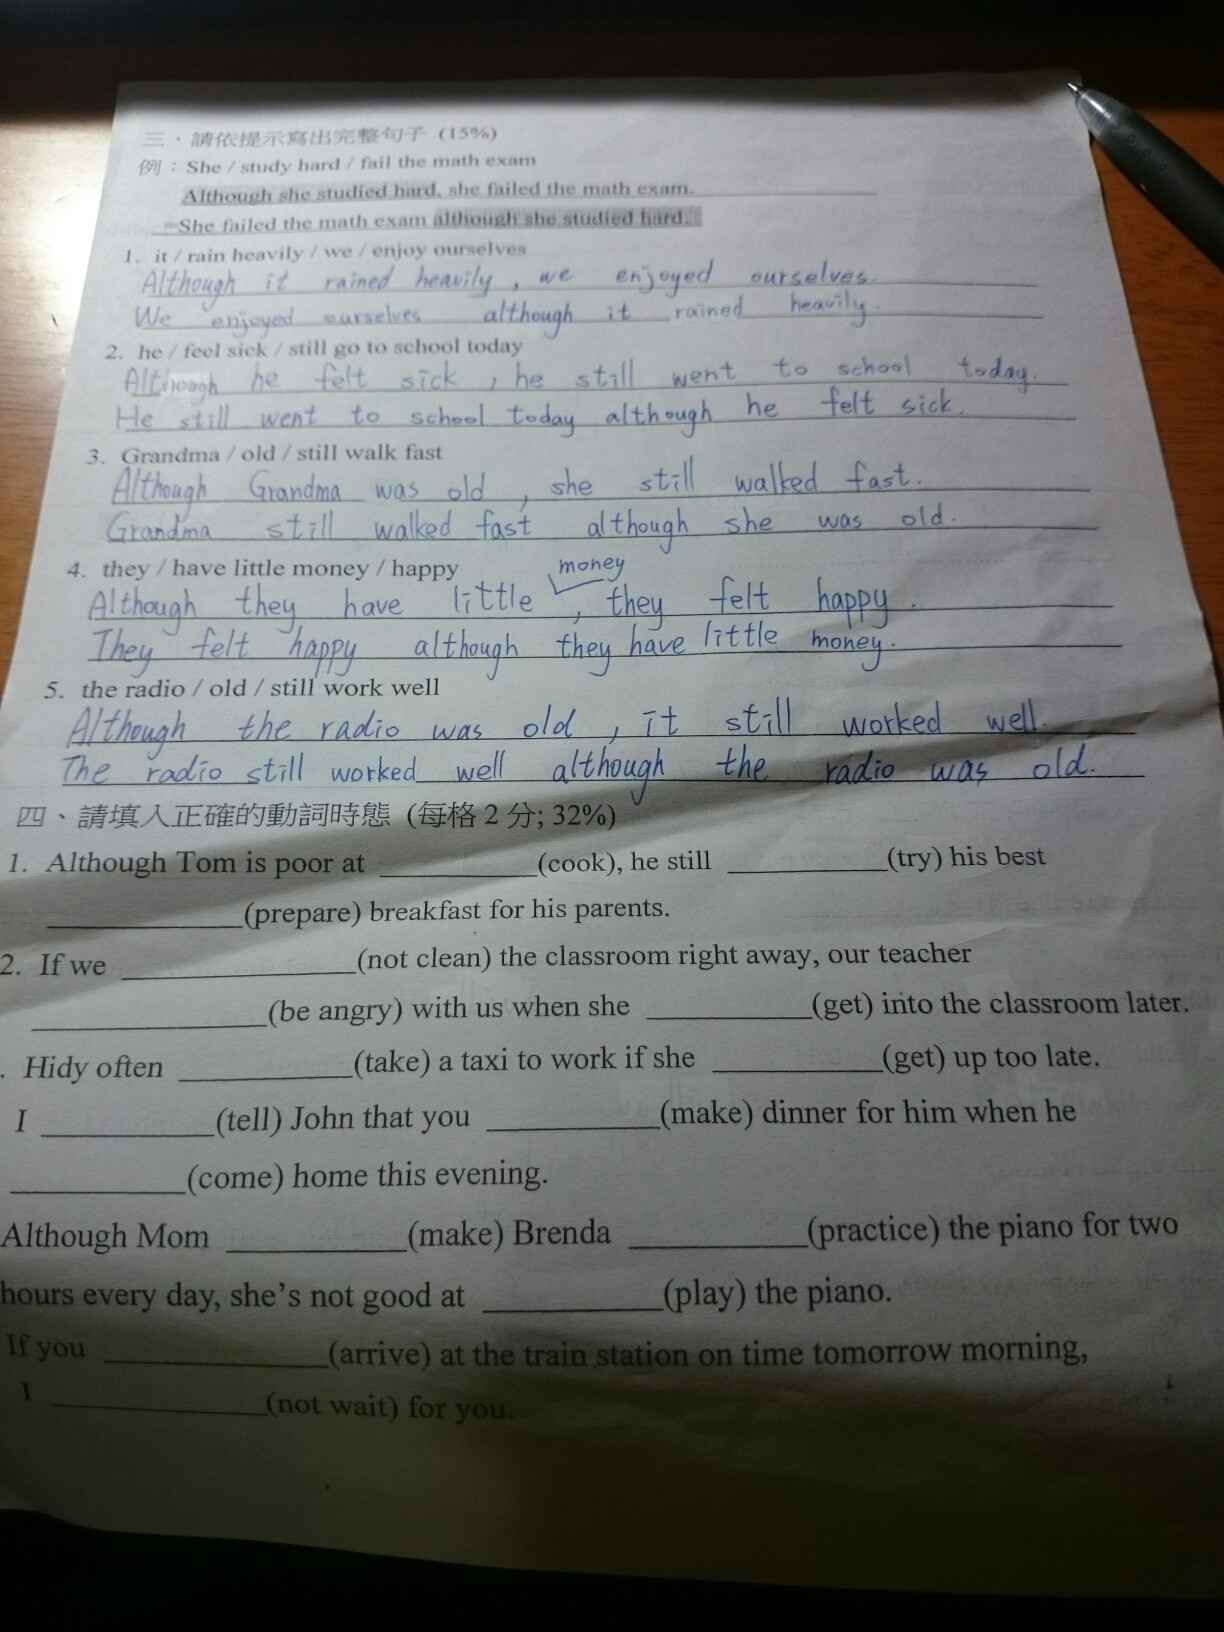 三、請依提示寫出完整句子 (15%)
例：She / study hard / fail the math exam
Although she studied hard, she failed the math exam.
=She failed the math exam although she studied hard.
1. it / rain heavily / we / enjoy ourselves
Although it rained heavily, we enjoyed ourselves.
We enjoyed ourselves although it rained heavily.
2. he / feel sick / still go to school today
Although he felt sick, he still went to school today.
He still went to school today although he felt sick.
3. Grandma / old / still walk fast
Although Grandma was old, she still walked fast.
Grandma still walked fast although she was old.
4. they / have little money / happy
Although they have little money, they felt happy.
They felt happy although they have little money.
5. the radio / old / still work well
Although the radio was old, it still worked well.
The radio still worked well although the radio was old.
四、請填入正確的動詞時態 (每格 2 分; 32%)
1. Although Tom is poor at ________(cook), he still ________(try) his best
________(prepare) breakfast for his parents.
2. If we ________(not clean) the classroom right away, our teacher
________(be angry) with us when she ________(get) into the classroom later.
. Hidy often ________(take) a taxi to work if she ________(get) up too late.
I ________(tell) John that you ________(make) dinner for him when he
________(come) home this evening.
Although Mom ________(make) Brenda ________(practice) the piano for two
hours every day, she's not good at ________(play) the piano.
If you ________(arrive) at the train station on time tomorrow morning,
I ________(not wait) for you.